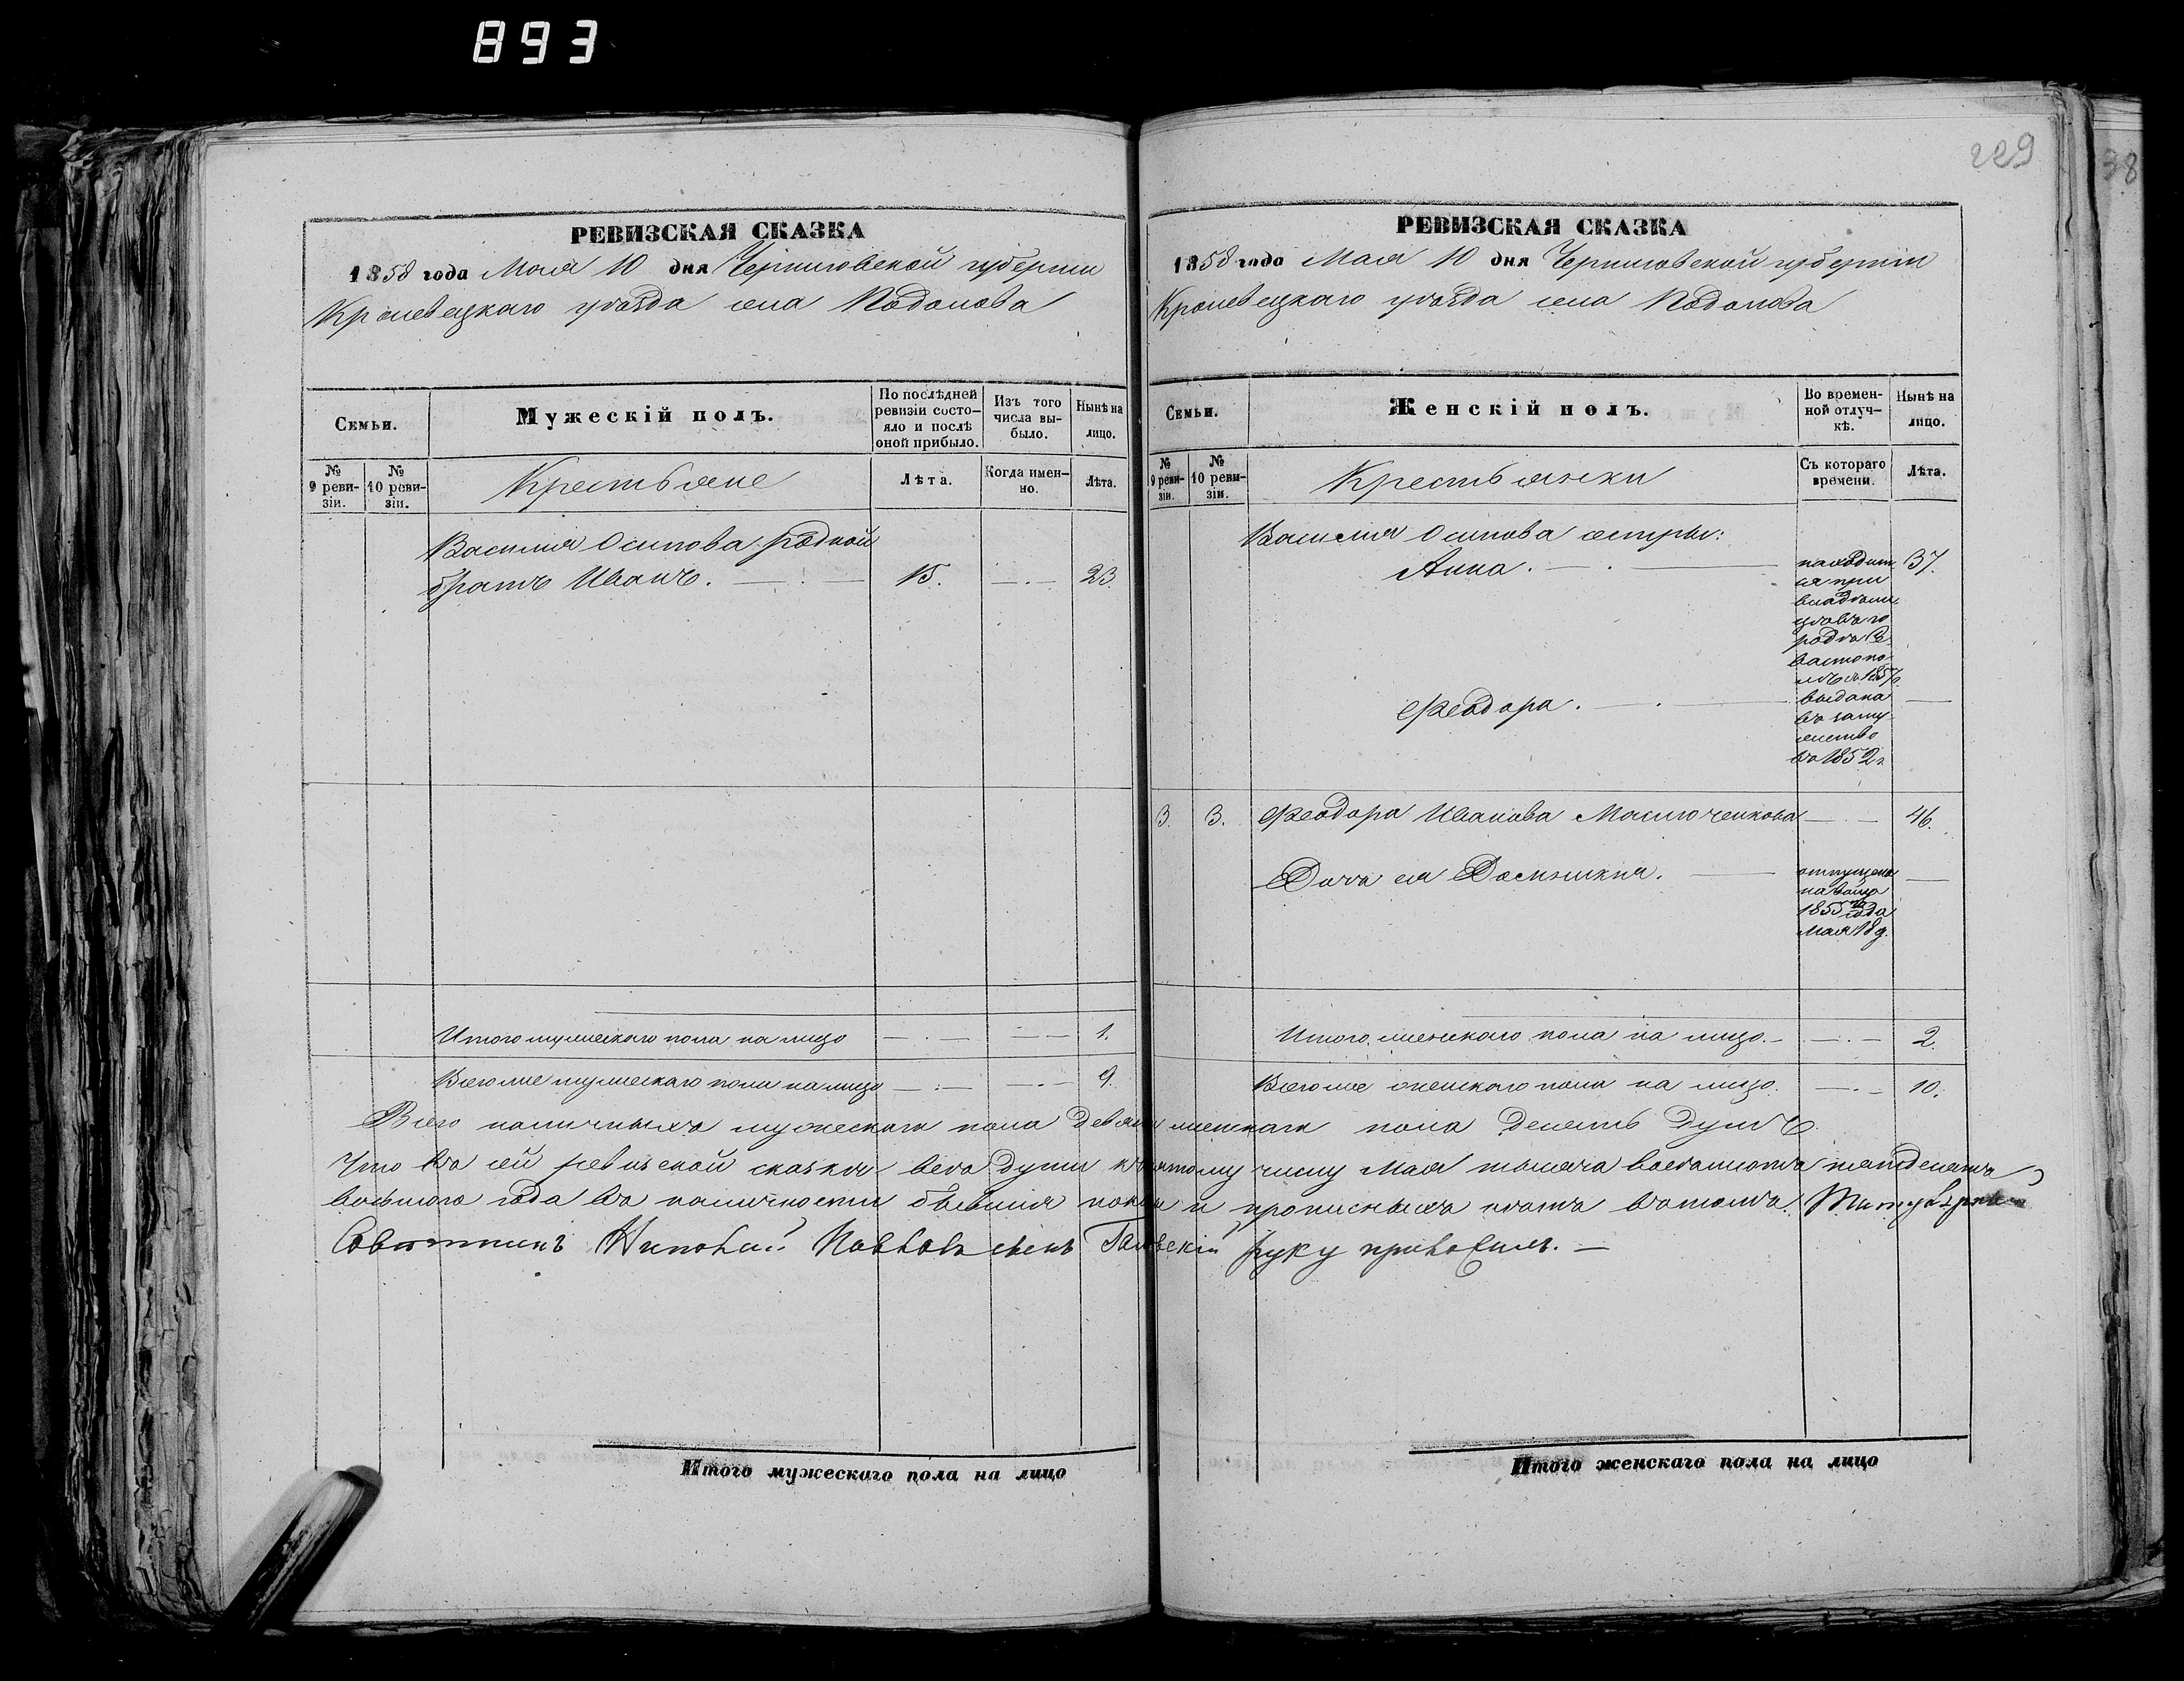 893
229
38
РЕВИЗСКАЯ СКАЗКА
1858 года Мая 10 дня Черниговской губернии
Кролевецкаго уѣзда села Подолова
Семьи.
Мужескій полъ.
По послѣдней ревизіи состо-
яло и послѣ
оной прибыло.
Изъ того
числа вы-
было.
Нынѣ на
лицо.
№
9 реви-
зіи.
№
10 реви-
зіи.
Крестьяне
Лѣта.
Когда имен-
но.
Лѣта.
Василия Осипова родной
братъ Иванъ. 15. 23
Итого мужескаго пола на лицо 1.
Всего же мужескаго пола на лицо 9.
РЕВИЗСКАЯ СКАЗКА
1858 года Мая 10 дня Черниговской губернии
Кролевецкаго уѣзда села Подолова
Семьи.
Женскій полъ.
Во времен-
ной отлуч-
кѣ.
Нынѣ на
лицо.
№
9 реви-
зіи.
№
10 реви-
зіи.
Крестьянки
Съ котораго
времени.
Лѣта.
Василия Осипова сестры:
Анна. 37.
находит
ся при
владѣли
цѣ въ го
родѣ Се
вастопо
лѣ съ 1857
Феодора.
выдана
въ заму
жество
въ 1852 г.
3. 3. Феодора Иванова Маслюченкова 46.
Дочь ея Домникия.
отпущена
на волю
1855 го
года
Мая 18 д.
Итого женскаго пола на лицо. 2.
Всего же женскаго пола на лицо. 10.
Всего наличныхъ мужескаго пола девять женскаго пола десять душъ.
Что въ сей ревизской сказкѣ всѣ души къ числу Мая тысяча восемьсотъ пятдесятъ
восьмого года въ наличности бывшия показаны и прописныхъ нѣтъ въ томъ Титулярный
Совѣтникъ Николай Павловъ сынъ руку приложилъ.
Итого мужескаго пола на лицо
Итого женскаго пола на лицо